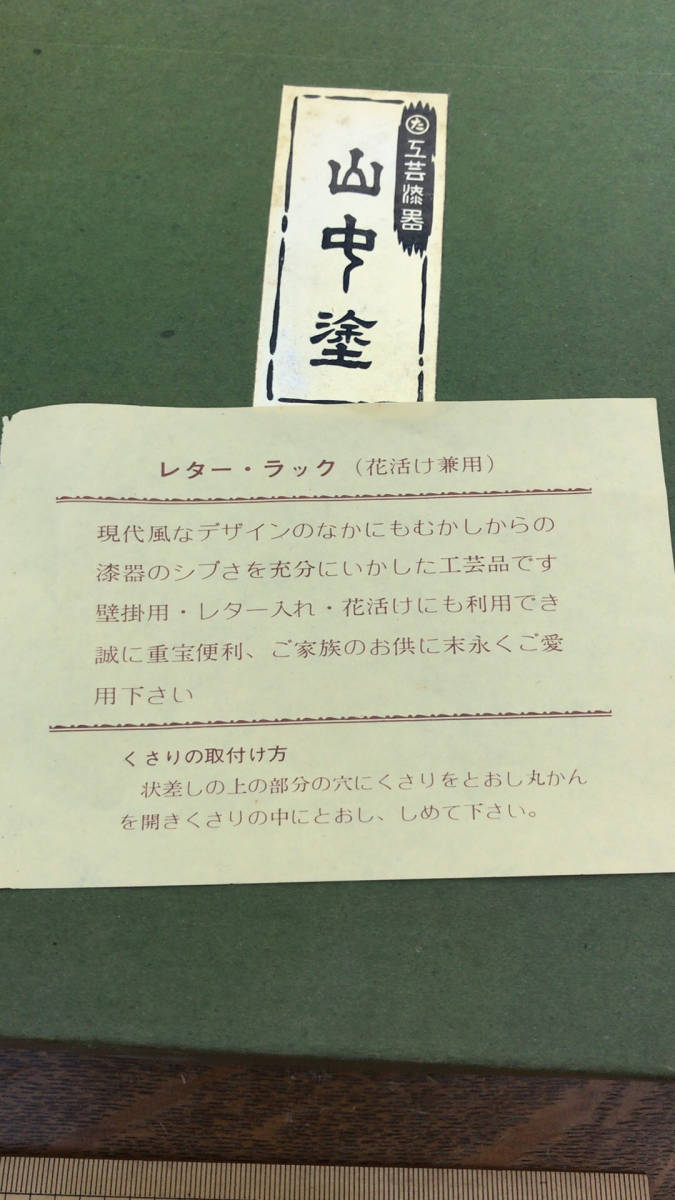 ㋟工芸漆器
山中塗
レター・ラック（花活け兼用）
現代風なデザインのなかにもむかしからの
漆器のシブさを充分にいかした工芸品です
壁掛用・レター入れ・花活けにも利用でき
誠に重宝便利、ご家族のお供に末永くご愛
用下さい
くさりの取付け方
状差しの上の部分の穴にくさりをとおし丸かん
を開きくさりの中にとおし、しめて下さい。